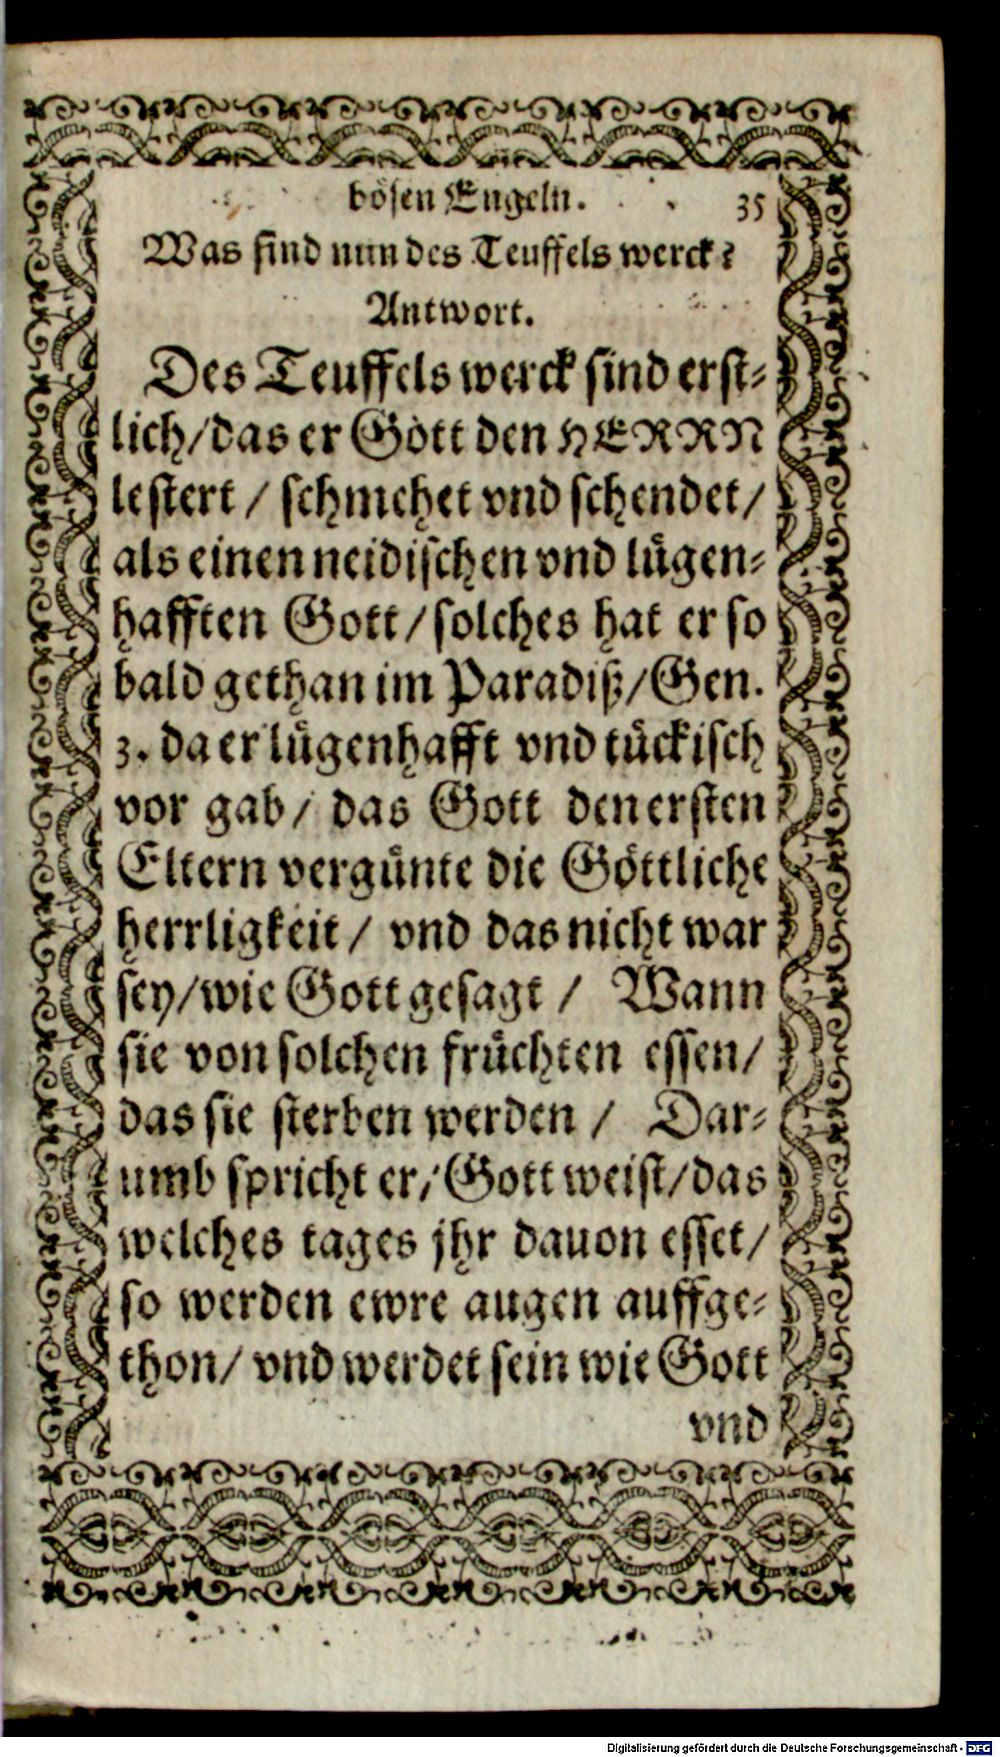 bösen Engeln. 35
Was sind nun des Teuffels werck?
Antwort.
Des Teuffels werck sind erst-
lich/das er Gott den HERRN
lestert / schmehet vnd schendet/
als einen neidischen vnd lügen-
hafften Gott/solches hat er so
bald gethan im Paradiß/Gen.
3. da er lügenhafft vnd tückisch
vor gab/ das Gott den ersten
Eltern vergünte die Göttliche
herrligkeit / vnd das nicht war
sey/wie Gott gesagt / Wann
sie von solchen früchten essen/
das sie sterben werden / Dar-
umb spricht er/ Gott weist/das
welches tages jhr dauon esset/
so werden ewre augen auffge-
thon/ vnd werdet sein wie Gott
vnd
Digitalisierung gefördert durch die Deutsche Forschungsgemeinschaft - DFG